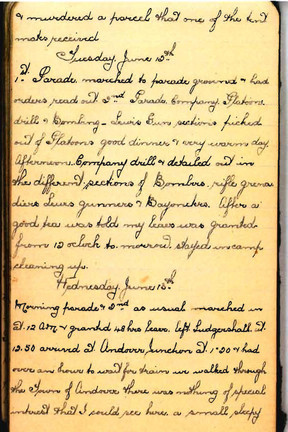 & murdered a parcel that one of the tent
mates received
Tuesday June 12th
1st Parade marched to parade ground & had
orders read out 2nd Parade Company, Platoon
drill & Bombing - Lewis Gun sections picked
out of Platoons good dinner & very warm day.
Afternoon Company drill & detailed out in
the different sections of Bombers, rifle grena
diers Lewis gunners & Bayoneters. After a
good tea was told my leave was granted
from 12 oclock to-morrow. stayed in camp
cleaning up.
Wednesday June 13th
Morning parade & 2nd as usual marched in
at 12 AM & granted 48 hrs leave. left Ludgershall at
12.50 arrived at Andover Junction at 1.20 & had
over an hour to wait for train so we walked through
the Town of Andover there was nothing of special
interest that I could see here a small sleepy